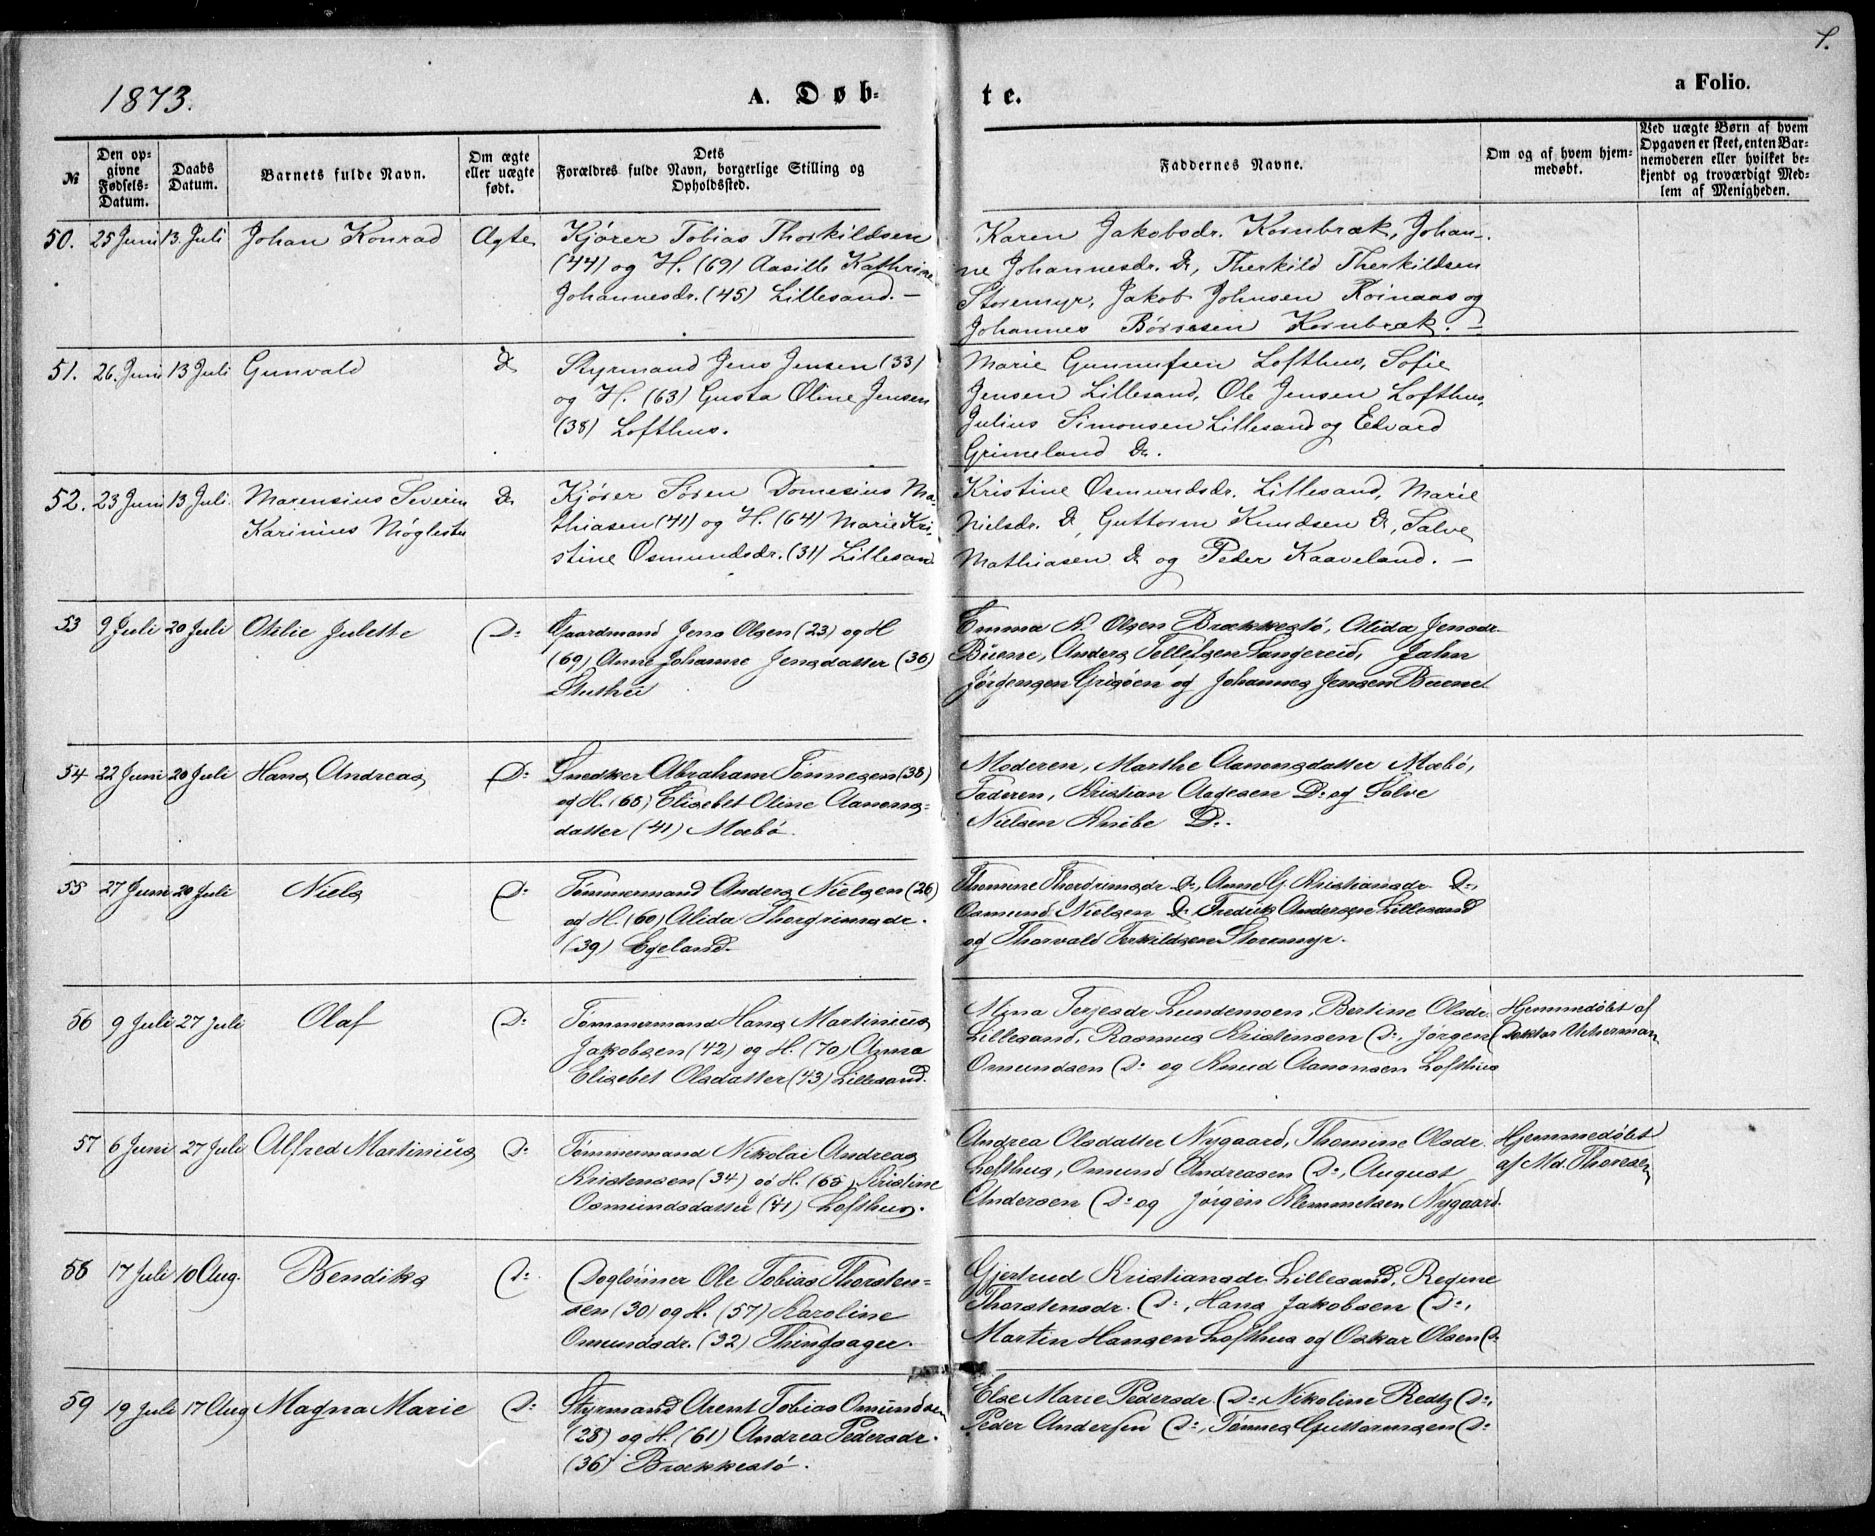 1873.
A. Døb-
te.
a Folio.
№
Den op-
givne
Fødsels-
Datum.
Daabs
Datum.
Barnets fulde Navn.
Om ægte
eller uægte
født.
Dets
Forældres fulde Navn, borgerlige Stilling og
Opholdssted.
Faddernes Navne.
Om og af hvem hjem-
medøbt.
Ved uægte Børn af hvem
Opgaven er skeet, enten Bar-
nemoderen eller hvilket be-
kjendt og troværdigt Med-
lem af Menigheden.
50. 25 Juni 13. Juli Johan Konrad Ægte
Kjører Tobias Thorkildsen
(44) og H. (69) Aasille Kathrine
Johannesdr. (45) Lillesand. —
Karen Jakobsdr. Kornbræk, Johan-
ne Johannesdr. Do, Therkild Therkildsen
Storemyr, Jakob Johnsen og
Johannes Børresen Kornbræk. —
51. 26. Juni 13 Juli Gunvald Do
Styrmand Jens Jensen (33)
og H. (63) Gusta Oline Jensen
(38) Lofthus.
Marie Gunnufsen Lofthus, Sofie
Jensen Lillesand, Ole Jensen Lofthus,
Julius Simonsen Lillesand og Edvard
Grimeland Do.
52. 23 Juni 13 Juli. Marensius Severin
Karinius Møglestu Do
Kjører Søren Domesius Ma-
thiasen (41) og H. (64) Marie Kri-
stine Osmundsdr. (31) Lillesan
Kristine Osmundsdr. Lillesand, Marie
Nielsdr. Do, Guttorm Knudsen Do, Salve
Mathiasen Do og Peder Kaaveland. —
53 9 Juli 20 Juli Otilie Julette Do:
Gaardmand Jens Olsen (23) og H
(69) Anne Johanne Jensdatter (36)
Stushei
Emma K Olsen Brækkestø, Alida Jensdr
Buene, Anders Tellefsen Langereid, Jahn
Jørgensen Grisøen og Johannes Jensen Buene
54 22 Juni 20 Juli Hans Andreas Do:
Snedker Abraham Tønnesen (38)
og H. (68) Elisebet Oline Aanons-
datter (41) Mæbø.
Moderen, Marthe Aanonsdatter Mæbø,
Faderen, Kristian Aagesen Do: og Salve
Nielsen Knibe Do:.
55 27 Juni 20 Juli Niels Do:
Tømmermand Anders Nielsen (26)
og H. (60) Alida Thorgrimsdr.
(39) Egeland.
Thomine Thordrimsdr Do:, Anne G. Kristiansdr Do:,
Osmund Nielsen Do:, Fredrik Andersen Lillesand
og Thorvald Terkildsen Storemyr.
56 9 Juli 27 Juli Olaf Do:
Tømmermand Hans Martinius
Jakobsen (42) og H. (70) Anna
Elisebet Olsdatter (43) Lillesand.
Mina Terjesdr Lundemoen, Bertine Olsdr.
Lillesand, Rasmus Kristensen Do:, Jørgen
Omundsen Do: og Knud Aanonsen Lofthus
Hjemmedøbt af
Doktor Ucherman
57 6 Juni 27 Juli Alfred Martinius Do:
Tømmermand Nikolai Andreas
Kristensen (34) og H. (65) Kristine
Osmundsdatter (41) Lofthus.
Andrea Olsdatter Nygaard, Thomine Olsdr.
Lofthus, Omund Andreasen Do:, August
Andersen Do: og Jørgen Klemmetsen Nygaard.
Hjemmedøbt
af Md. Thoresen
58 17 Juli 10 Aug. Bendiks Do:
Dagløner Ole Tobias Thorsten-
sen (30) og H. (57) Karoline
Omundsdr. (32) Thingsager.
Gjertrud Kristiansdr. Lillesand, Regine
Thorstensdr. Do:, Hans Jakobsen Do:,
Martin Hansen Lofthus og Oskar Olsen Do:
59 19 Juli 17 Aug Magna Marie Do:
Styrmand Arent Tobias Omundsen
(28) og H. (61) Andrea Pedersdr.
(36) Brækkestø.
Else Marie Pedersdr. Do:, Nikoline Do:,
Peder Andersen Do:, Tønnes Guttormsen Do: